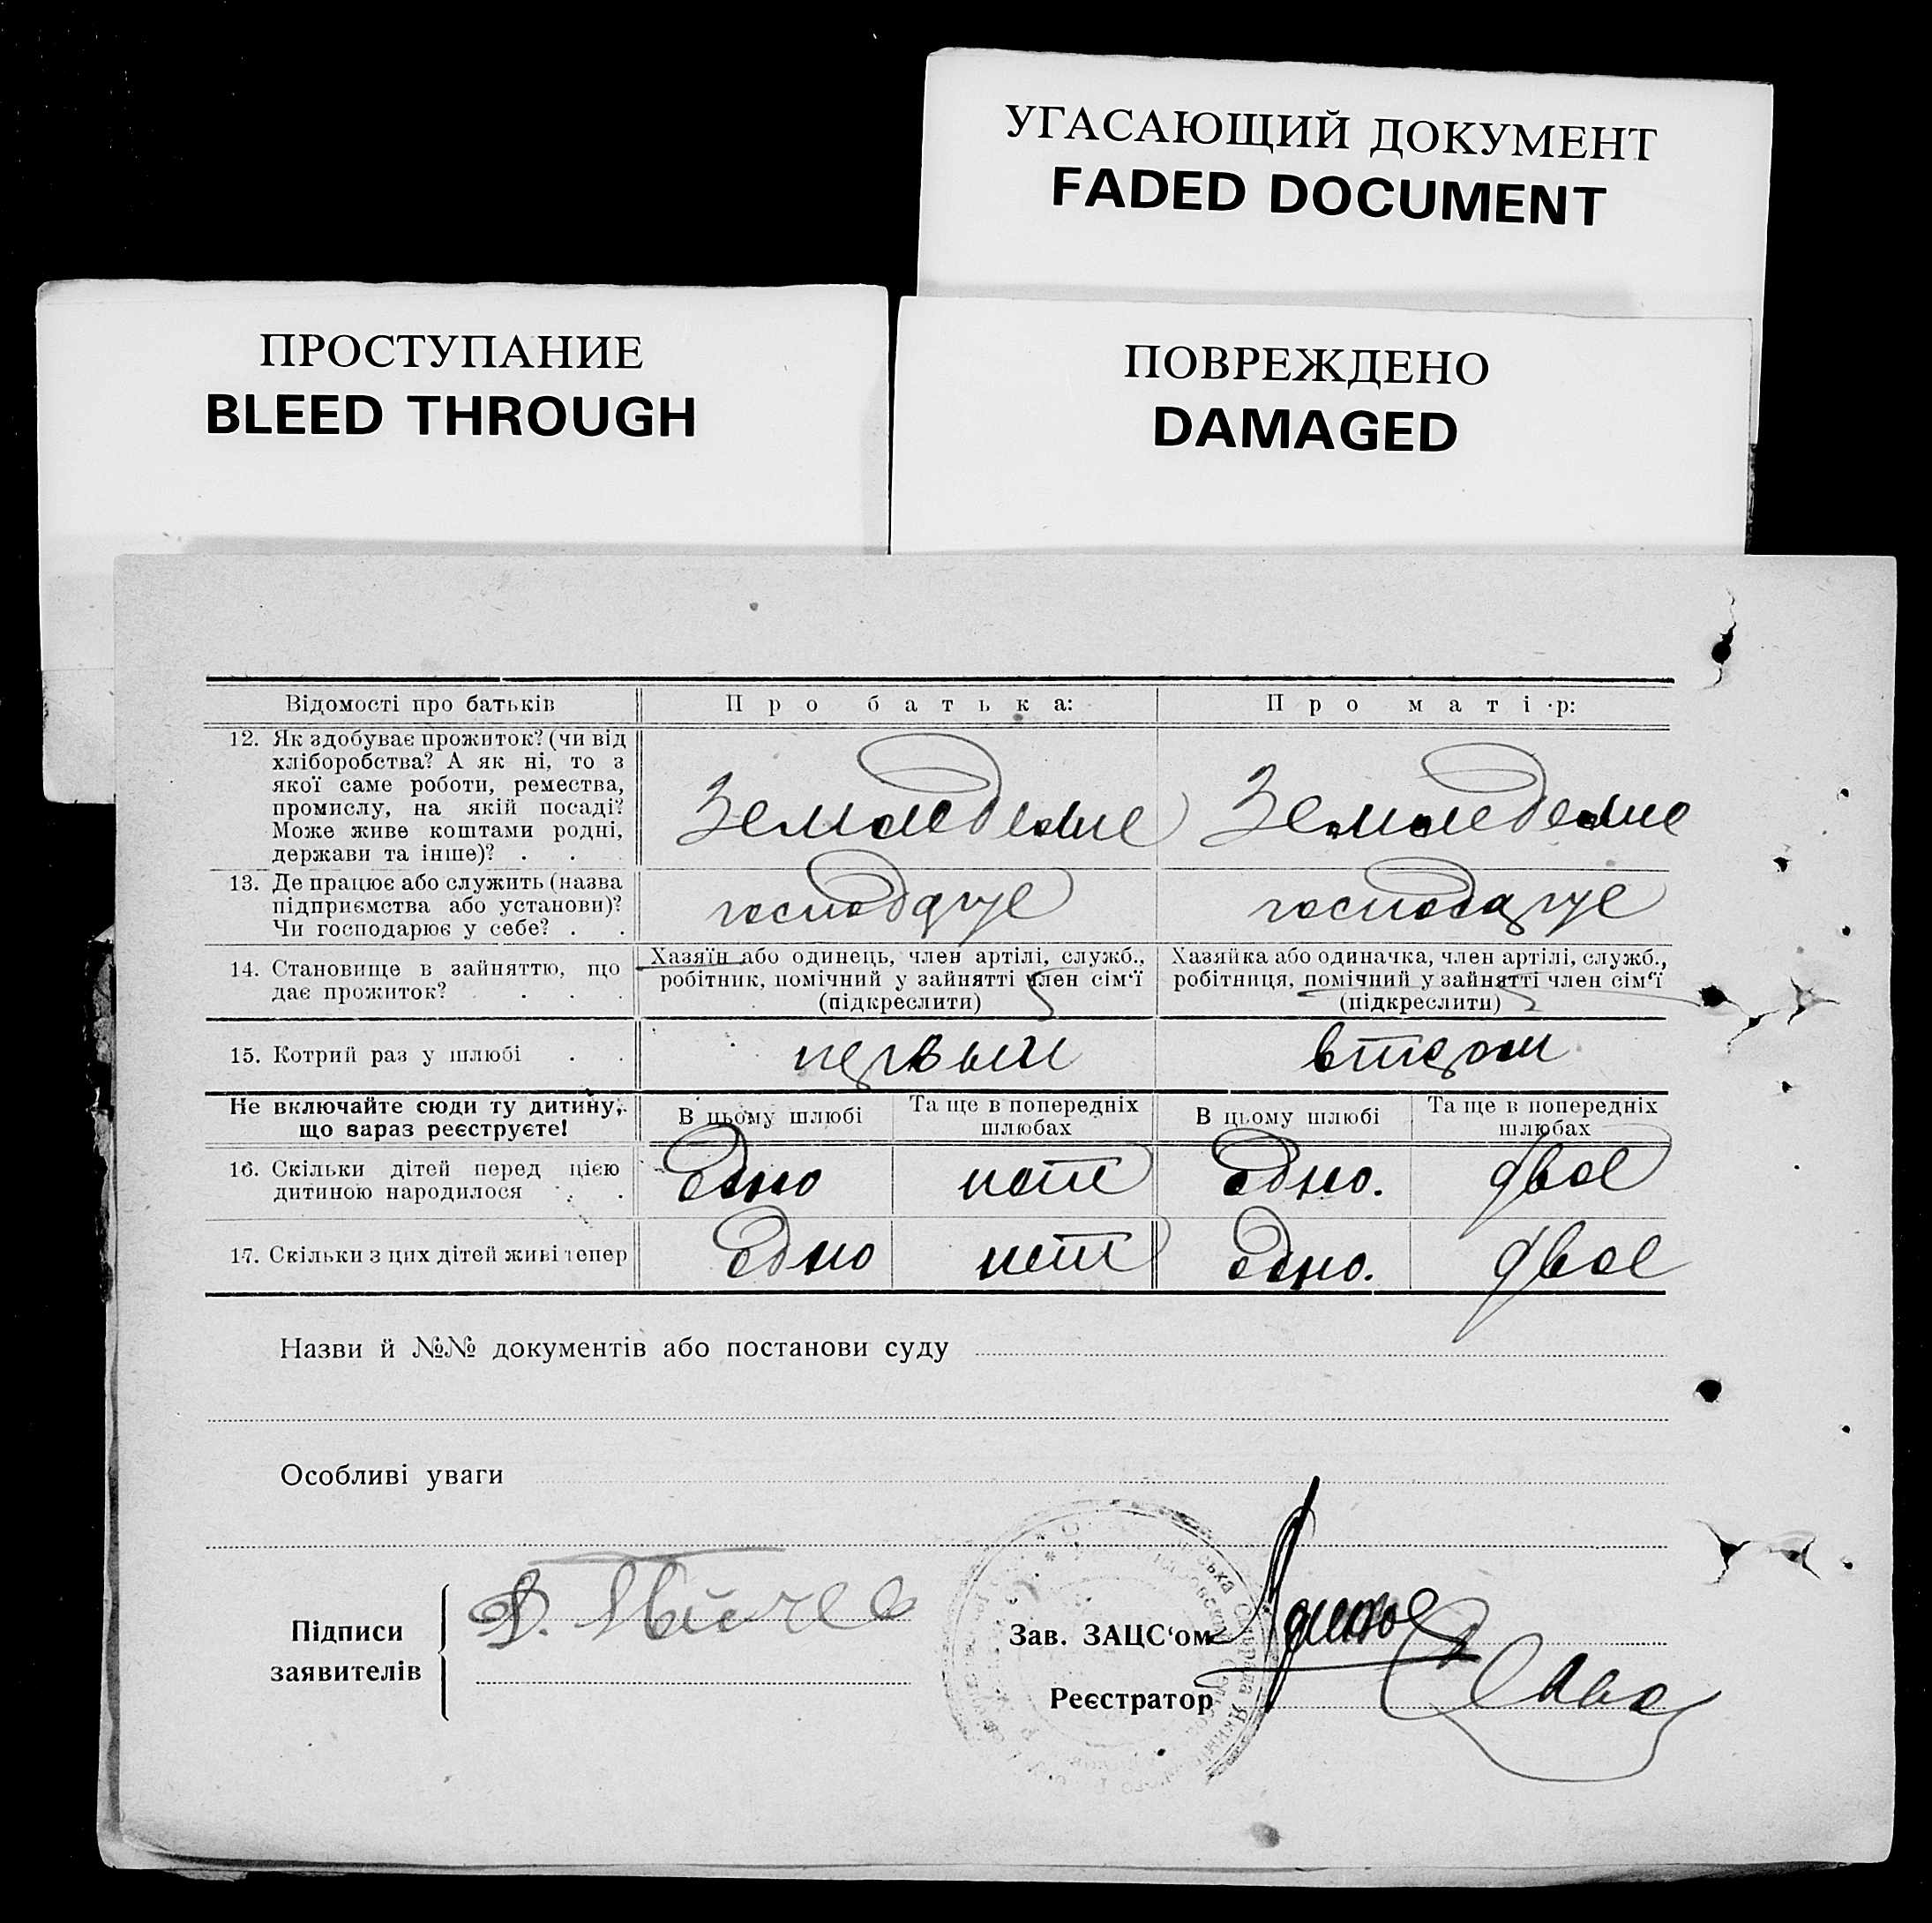 УГАСАЮЩИЙ ДОКУМЕНТ
FADED DOCUMENT
ПРОСТУПАНИЕ
BLEED THROUGH
ПОВРЕЖДЕНО
DAMAGED
Відомості про батьків
Про батька:
Про матір:
12. Як здобуває прожиток? (чи від
хліборобства? А як ні, то з
якої саме роботи, ремества,
промислу, на якій посаді?
Може живе коштами родні,
держави та інше)? . .
Земледелие
Земледелие
13. Де працює або служить (назва
підприємства або установи)?
Чи господарює у себе? . .
господарує
господарує
14. Становище в зайняттю, що
дає прожиток? . . .
Хазяїн або одинець, член артілі, служб.,
робітник, помічний у зайнятті член сім‘ї
(підкреслити)
Хазяйка або одиначка, член артілі, служб.,
робітниця, помічний у зайнятті член сім‘ї
(підкреслити)
15. Котрий раз у шлюбі . .
первый
втором
Не включайте сюди ту дитину,
що зараз реєструєте!
В цьому шлюбі
Та ще в попередніх
шлюбах
В цьому шлюбі
Та ще в попередніх
шлюбах
16. Скільки дітей перед цією
дитиною народилося . .
Одно
нет
Одно.
двое
17. Скільки з цих дітей живі тепер
Одно
нет
Одно.
двое
Назви й №№ документів або постанови суду
Особливі уваги
Підписи
заявителів
Зав. ЗАЦС‘ом
Реєстратор